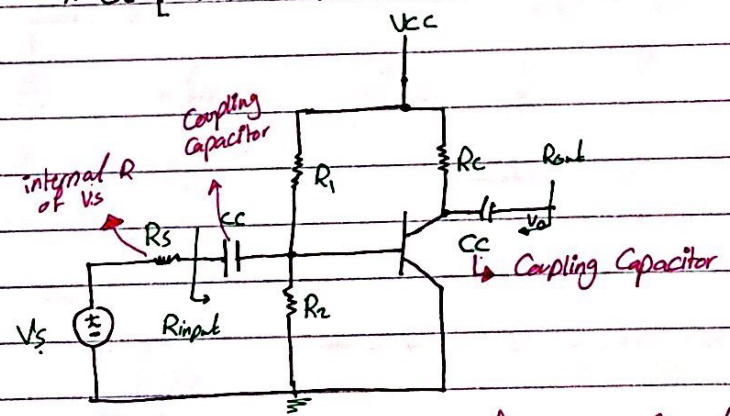 VCC
Coupling
Capacitor
internal R
of Vs
R1
RC
Rout
Rs
CC
Vo
CC
Coupling Capacitor
Rinput
R2
Vs